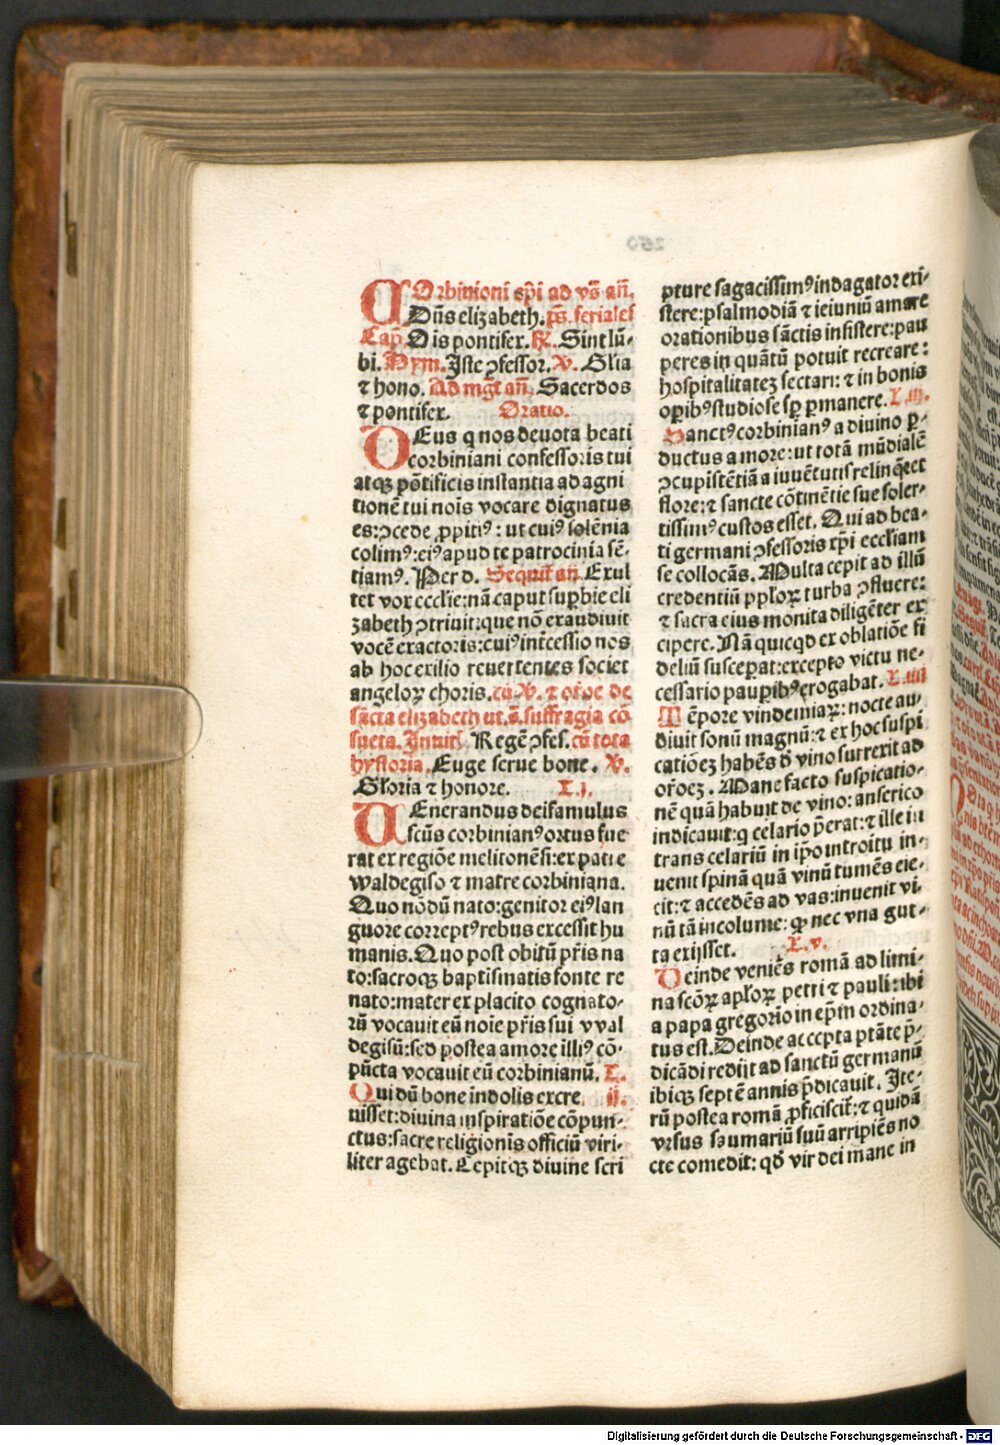 COrbiniani epi ad vs añ.
Dūs elizabeth. ps. feriales
Capl̄ Dis pontifex. R̄. Sint lū-
bi. Hym. Iste ꝯfessor. V̄. Glia
⁊ hono. Ad mgt̄ añ. Sacerdos
⁊ pontifex. Oratio.
DEus q nos deuota beati
corbiniani confessoris tui
atqꝫ pōtificis instantia ad agni
tionē tui nois vocare dignatus
es: ꝯcede ꝓpitiꝰ: ut cuiꝰ solēnia
colimꝰ: eiꝰ apud te patrocinia sē-
tiamꝰ. Per d. Sequit̄ añ. Exul
tet vox ecclie: nā caput supbie eli
zabeth ꝯtriuit: que nō exaudiuit
vocē exactoris: cuiꝰ int̄cessio nos
ab hoc exilio reuertentes societ
angeloꝝ choris. cū V̄. ⁊ oroe de
sācta elizabeth ut s̄. suffragia cō
sueta. Inuit̄. Regē ꝯfes. cū tota
hystoria. Euge serue bone. V̄.
Gloria ⁊ honore. L. j.
VEnerandus dei famulus
scūs corbinianꝰ ortus fue
rat ex regiōe melitonēsi: ex patre
waldegiso ⁊ matre corbiniana.
Quo nōdū nato: genitor eiꝰ lan
guore correptꝰ rebus excessit hu
manis. Quo post obitū pr̄is na
to: sacroqꝫ baptismatis fonte re
nato: mater ex placito cognato-
rū vocauit eū noie pr̄is sui vval
degisū: sed postea amore illiꝰ cō-
pūcta vocauit eū corbinianū. L.
Qui dū bone indolis excre. ij.
uisset: diuina inspiratiōe cōpun-
ctus: sacre religionis officiū viri-
liter agebat. Cepitqꝫ diuine scri
pture sagacissimꝰ indagator exi-
stere: psalmodiā ⁊ ieiuniū amare
orationibus sāctis insistere: pau
peres in quātū potuit recreare:
hospitalitateꝫ sectari: ⁊ in bonis
opibꝰ studiose sp pmanere. L. iij.
Sanctꝰ corbinianꝰ a diuino p-
ductus amore: ut totā mūdialē
ꝯcupistētiā a iuuētutis relinq̄ret
flore: ⁊ sancte cōtinētie sue soler-
tissimꝰ custos esset. Qui ad bea-
ti germani ꝯfessoris xp̄i eccliam
se collocās. Multa cepit ad illū
credentiū pploꝝ turba ꝯfluere:
⁊ sacra eius monita diligēter ex
cipere. Nā quicqd ex oblatiōe fi
deliū susceperat: excepto victu ne-
cessario paupibꝰ erogabat. L. iiij
Tēpore vindemiaꝝ: nocte au-
diuit sonū magnū: ⁊ ex hoc suspi
catioeꝫ habēs d̄ vino surrexit ad
or̄oeꝫ. Mane facto suspicatio-
nē quā habuit de vino: anserico
indicauit: q celario p̄erat: ⁊ ille in
trans celariū in ip̄o introitu in-
uenit spinā quā vinū tumēs eie-
cit: ⁊ accedēs ad vas: inuenit vi-
nū tā incolume: ꝙ nec vna gut-
ta exijsset. L. v.
Deinde veniēs romā ad limi-
na scōꝝ apl̄oꝝ petri ⁊ pauli: ibi
a papa gregorio in ep̄m ordina-
tus est. Deinde accepta ptāte p̄-
dicādi redijt ad sanctū germanū
ibiqꝫ septē annis p̄dicauit. Ite-
rū postea romā ꝓficiscit̄: ⁊ quidā
vrsus saumariū suū arripiēs no
cte comedit: qd̄ vir dei mane in
Digitalisierung gefördert durch die Deutsche Forschungsgemeinschaft - DFG